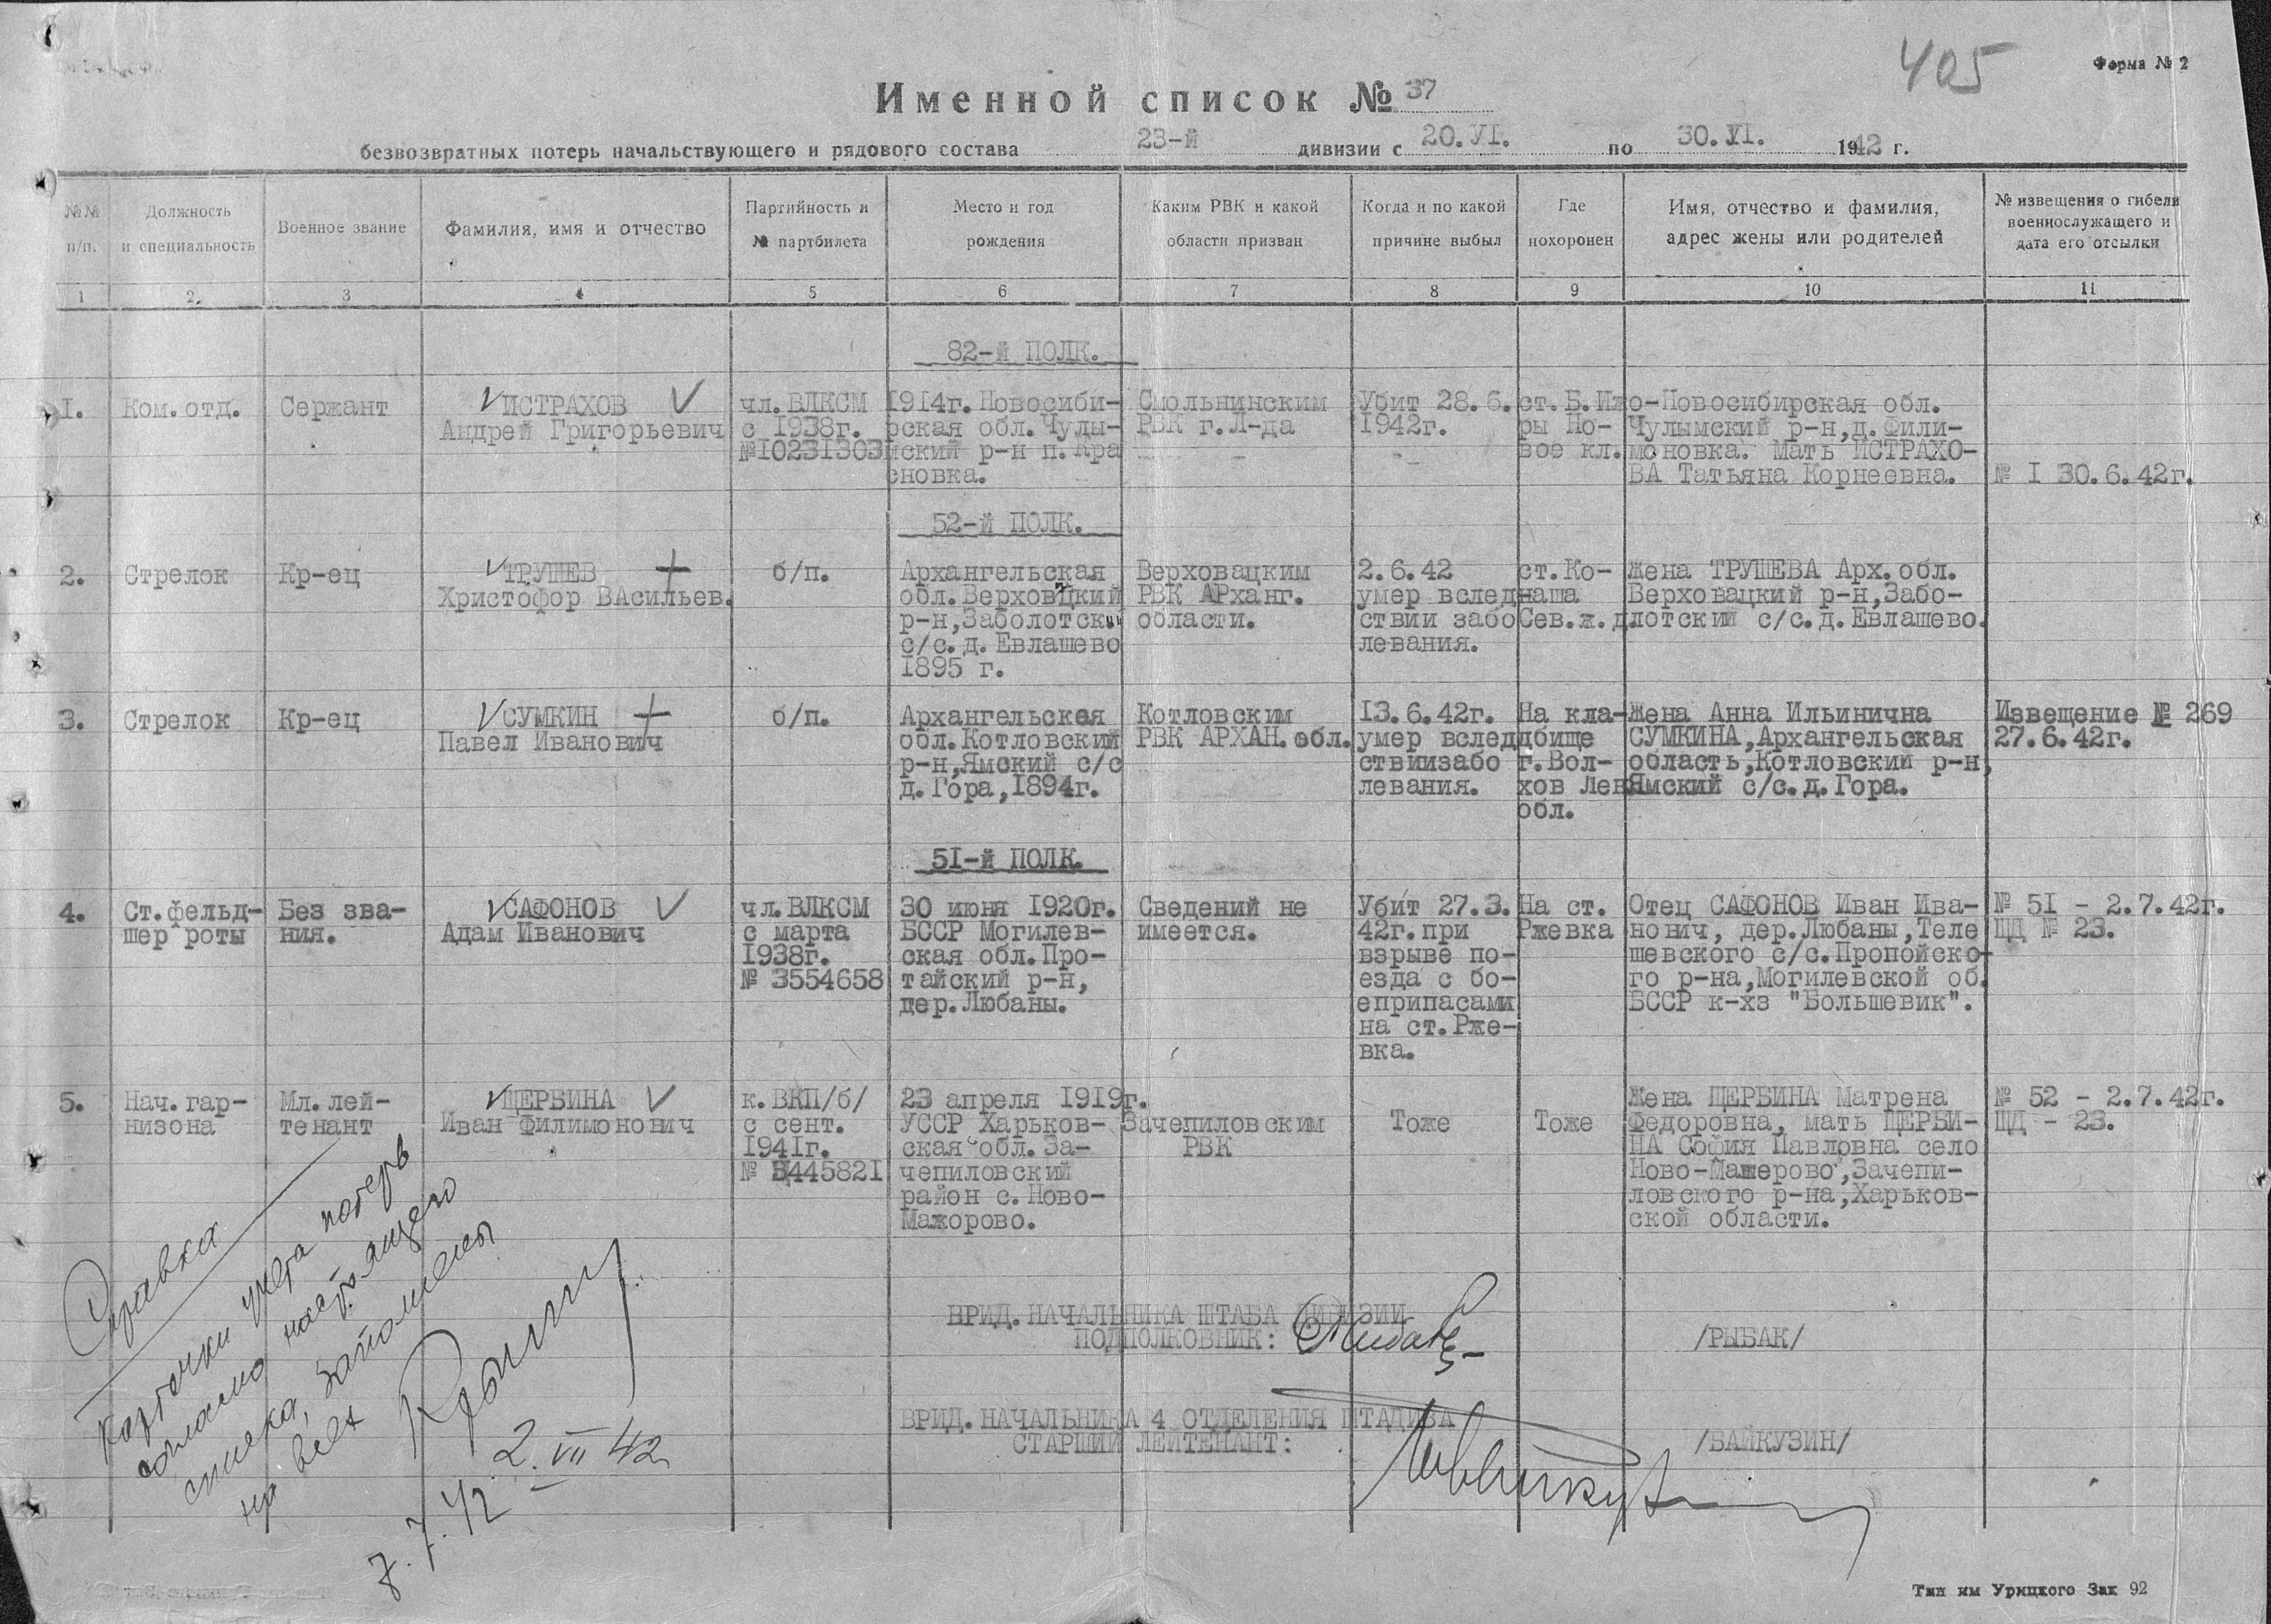 405
Форма № 2
Именной список № 37
безвозвратных потерь начальствующего и рядового состава 23-й дивизии с 20.VI. по 30.VI. 1942 г.
№№ п/п.
Должность и специальность
Военное звание
Фамилия, имя и отчество
Партийность и № партбилета
Место и год рождения
Каким РВК и какой области призван
Когда и по какой причине выбыл
Где похоронен
Имя, отчество и фамилия, адрес жены или родителей
№ извещения о гибели военнослужащего и дата его отсылки
1 2. 3 4 5 6 7 8 9 10 11
82-й ПОЛК.
1.
Ком.отд.
Сержант
ИСТРАХОВ
Андрей Григорьевич
чл.ВЛКСМ
с 1938г.
№10231303
1914г.Новосиби-
рская обл.Чулы-
мский р-н п.Кра
сновка.
Смольнинским
РВК г.Л-да
Убит 28.6.
1942г.
ст.Б.Ижо-
ры Но-
вое кл.
Новосибирская обл.
Чулымский р-н,д.Фили-
моновка. Мать ИСТРАХО-
ВА Татьяна Корнеевна.
№ 1 30.6.42г.
52-й ПОЛК.
2.
Стрелок
Кр-ец
ТРУШЕВ
Христофор ВАсильев.
б/п.
Архангельская
обл.Верховацкий
р-н,Заболотский
с/с.д.Евлашево
1895 г.
Верховацким
РВК АРханг.
области.
2.6.42
умер вслед
ствии забо
левания.
ст.Ко-
наша
Сев.ж.д.
Жена ТРУШЕВА Арх.обл.
Верховацкий р-н,Забо-
лотский с/с.д.Евлашево.
3.
Стрелок
Кр-ец
СУМКИН
Павел Иванович
б/п.
Архангельская
обл.Котловский
р-н,Ямский с/с
д.Гора,1894г.
Котловским
РВК АРХАН.обл.
13.6.42г.
умер вслед
ствиизабо
левания.
На кла-
дбище
г.Вол-
хов Лен
обл.
Жена Анна Ильинична
СУМКИНА,Архангельская
область,Котловский р-н,
Ямский с/с.д.Гора.
Извещение № 269
27.6.42г.
51-й ПОЛК.
4.
Ст.фельд-
шер роты
Без зва-
ния.
САФОНОВ
Адам Иванович
чл.ВЛКСМ
с марта
1938г.
№ 3554658
30 июня 1920г.
БССР Могилев-
ская обл.Про-
тайский р-н,
дер.Любаны.
Сведений не
имеется.
Убит 27.3.
42г.при
взрыве по-
езда с бо-
еприпасами
на ст.Рже-
вка.
На ст.
Ржевка
Отец САФОНОВ Иван Ива-
нович, дер.Любаны,Теле
шевского с/с.Пропойско-
го р-на,Могилевской об.
БССР к-хз "Большевик".
№ 51 - 2.7.42г.
ЩД № 23.
5.
Нач.гар-
низона
Мл.лей-
тенант
ЩЕРБИНА
Иван Филимонович
к.ВКП/б/
с сент.
1941г.
№ 3445821
23 апреля 1919г.
УССР Харьков-
ская обл.За-
чепиловский
район с.Ново-
Мажорово.
Зачепиловским
РВК
Тоже
Тоже
Жена ЩЕРБИНА Матрена
Федоровна, мать ЩЕРБИ-
НА София Павловна село
Ново-Мажерово,Зачепи-
ловского р-на,Харьков-
ской области.
№ 52 - 2.7.42г.
ЩД - 23.
Справка
Карточки учета потерь
согласно настоящего
списка, заполнены
на всех
2.VII 42
7.7.42
ВРИД.НАЧАЛЬНИКА ШТАБА ДИВИЗИИ
ПОДПОЛКОВНИК:
/РЫБАК/
ВРИД.НАЧАЛЬНИКА 4 ОТДЕЛЕНИЯ ШТАДИВА
СТАРШИЙ ЛЕЙТЕНАНТ:
/ВАЙКУЗИН/
Тип им Урицкого Зак 92